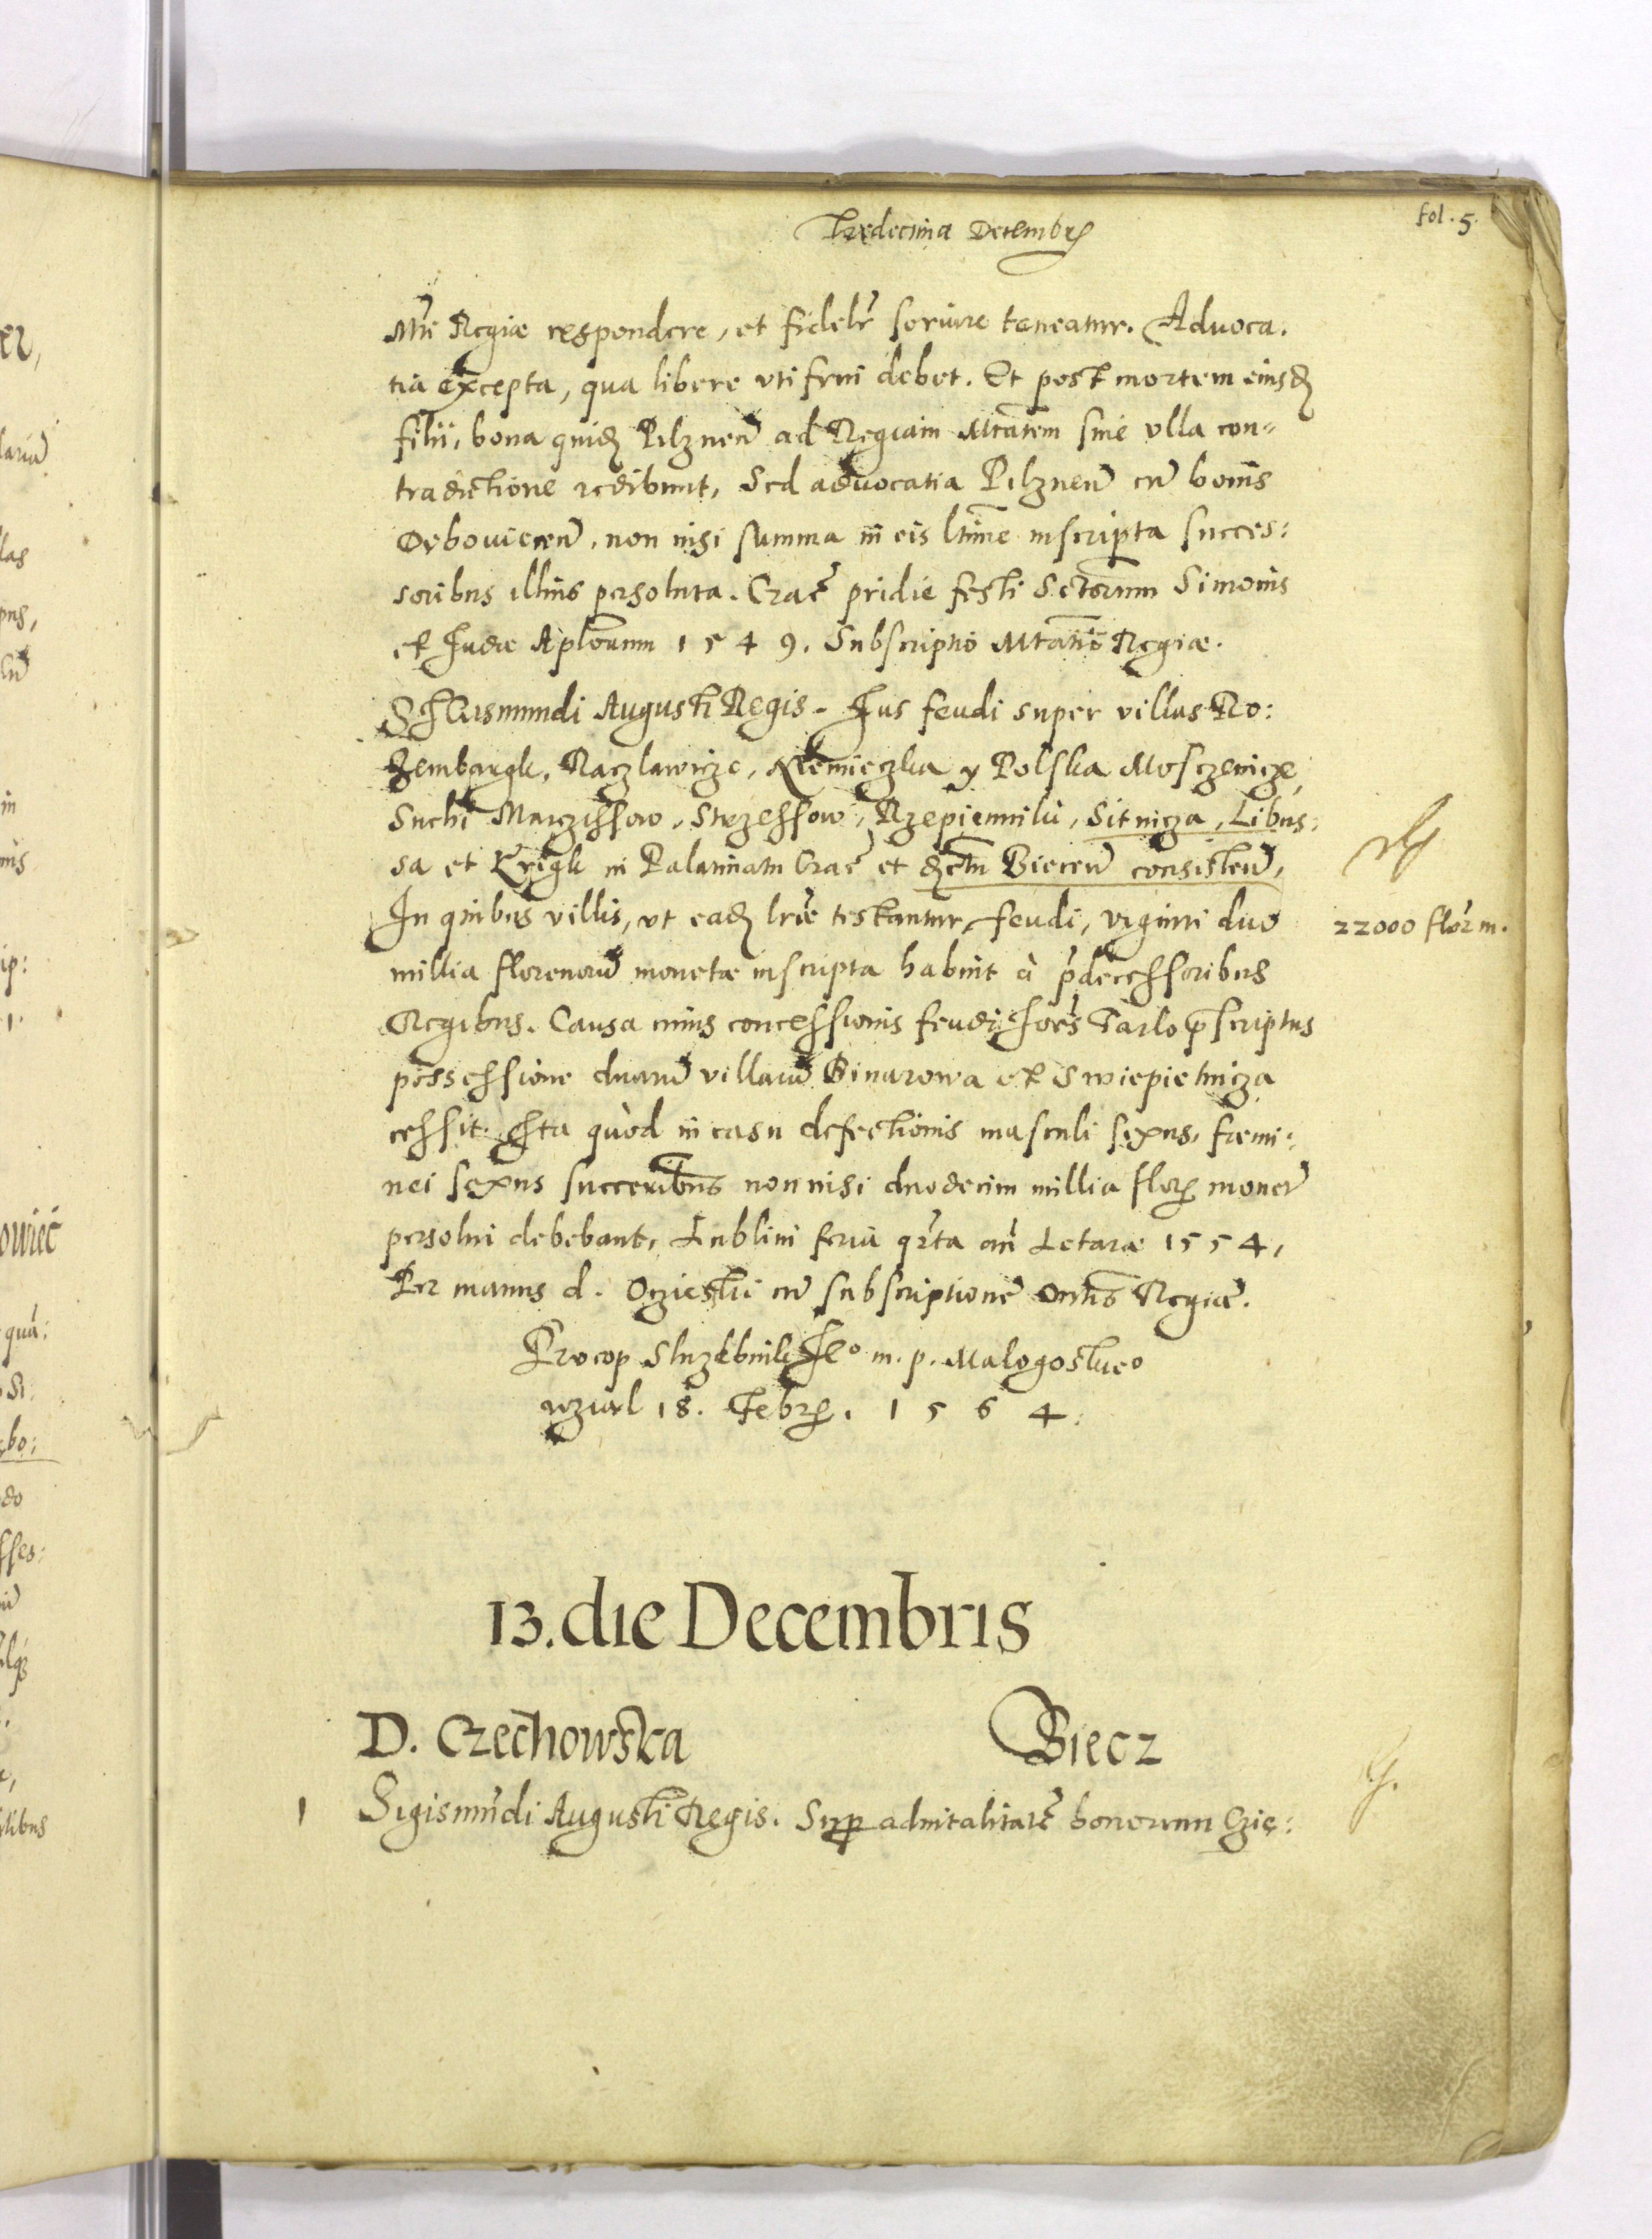 Tredecima Decembr
fol. 5.
Mti Regiæ respondere, et fidelr seruire teneatur. Aduoca.
tia excepta, qua libere vti frui debet. Et post mortem eiusd
filii, bona quid Pilznen ad Regiam Mtatem sine vlla con=
tradictione redibunt, Sed aduocatia Pilznen cu bonis
Orbouicen, non nisi summa in eis ltime inscripta succes:
soribus illius persoluta. Crac pridie festi Sctorum Simonis
et Judæ Aplorum 1549. Subscriptio Mtatis Regiæ.
SIGismundi Augusti Regis. Jus feudi super villas Ro:
zembargk, Raczlawicze, Niemieczka y Polska Mosczenicze,
Suchi Marczissow, Strzessow, Rzepiennik, Sitnicza, Libus:
sa et Krigk in Palatinatu Crac et Biecen consisten,
In quibus villis, vt ead lræ testantur feudi, viginti duo
22000 flor m.
millia florenoru monetæ inscripta habuit à prdecessoribus
Regibus. Causa cuius concessionis feudi Joes Tarlo prscriptus
possessione duaru villaru Binarowa et Swiepietnicza
cessit. Ita quòd in casu defectionis masculi sexus, fæmi:
nei sexus succeribus non nisi duodecim millia flor monet
persolui debebant, Lublini feria qrta an Letare 1554,
Per manus d. Oczieski cu subscriptione Regiæ.
Procop Sluzebnik m. p. Malogostue
wzial 18. Febr. 1564.
13. die Decembris
D. Czechowska Biecz
1 Sigismudi Augusti Regis. Sup aduitalitate bonorum Czie: